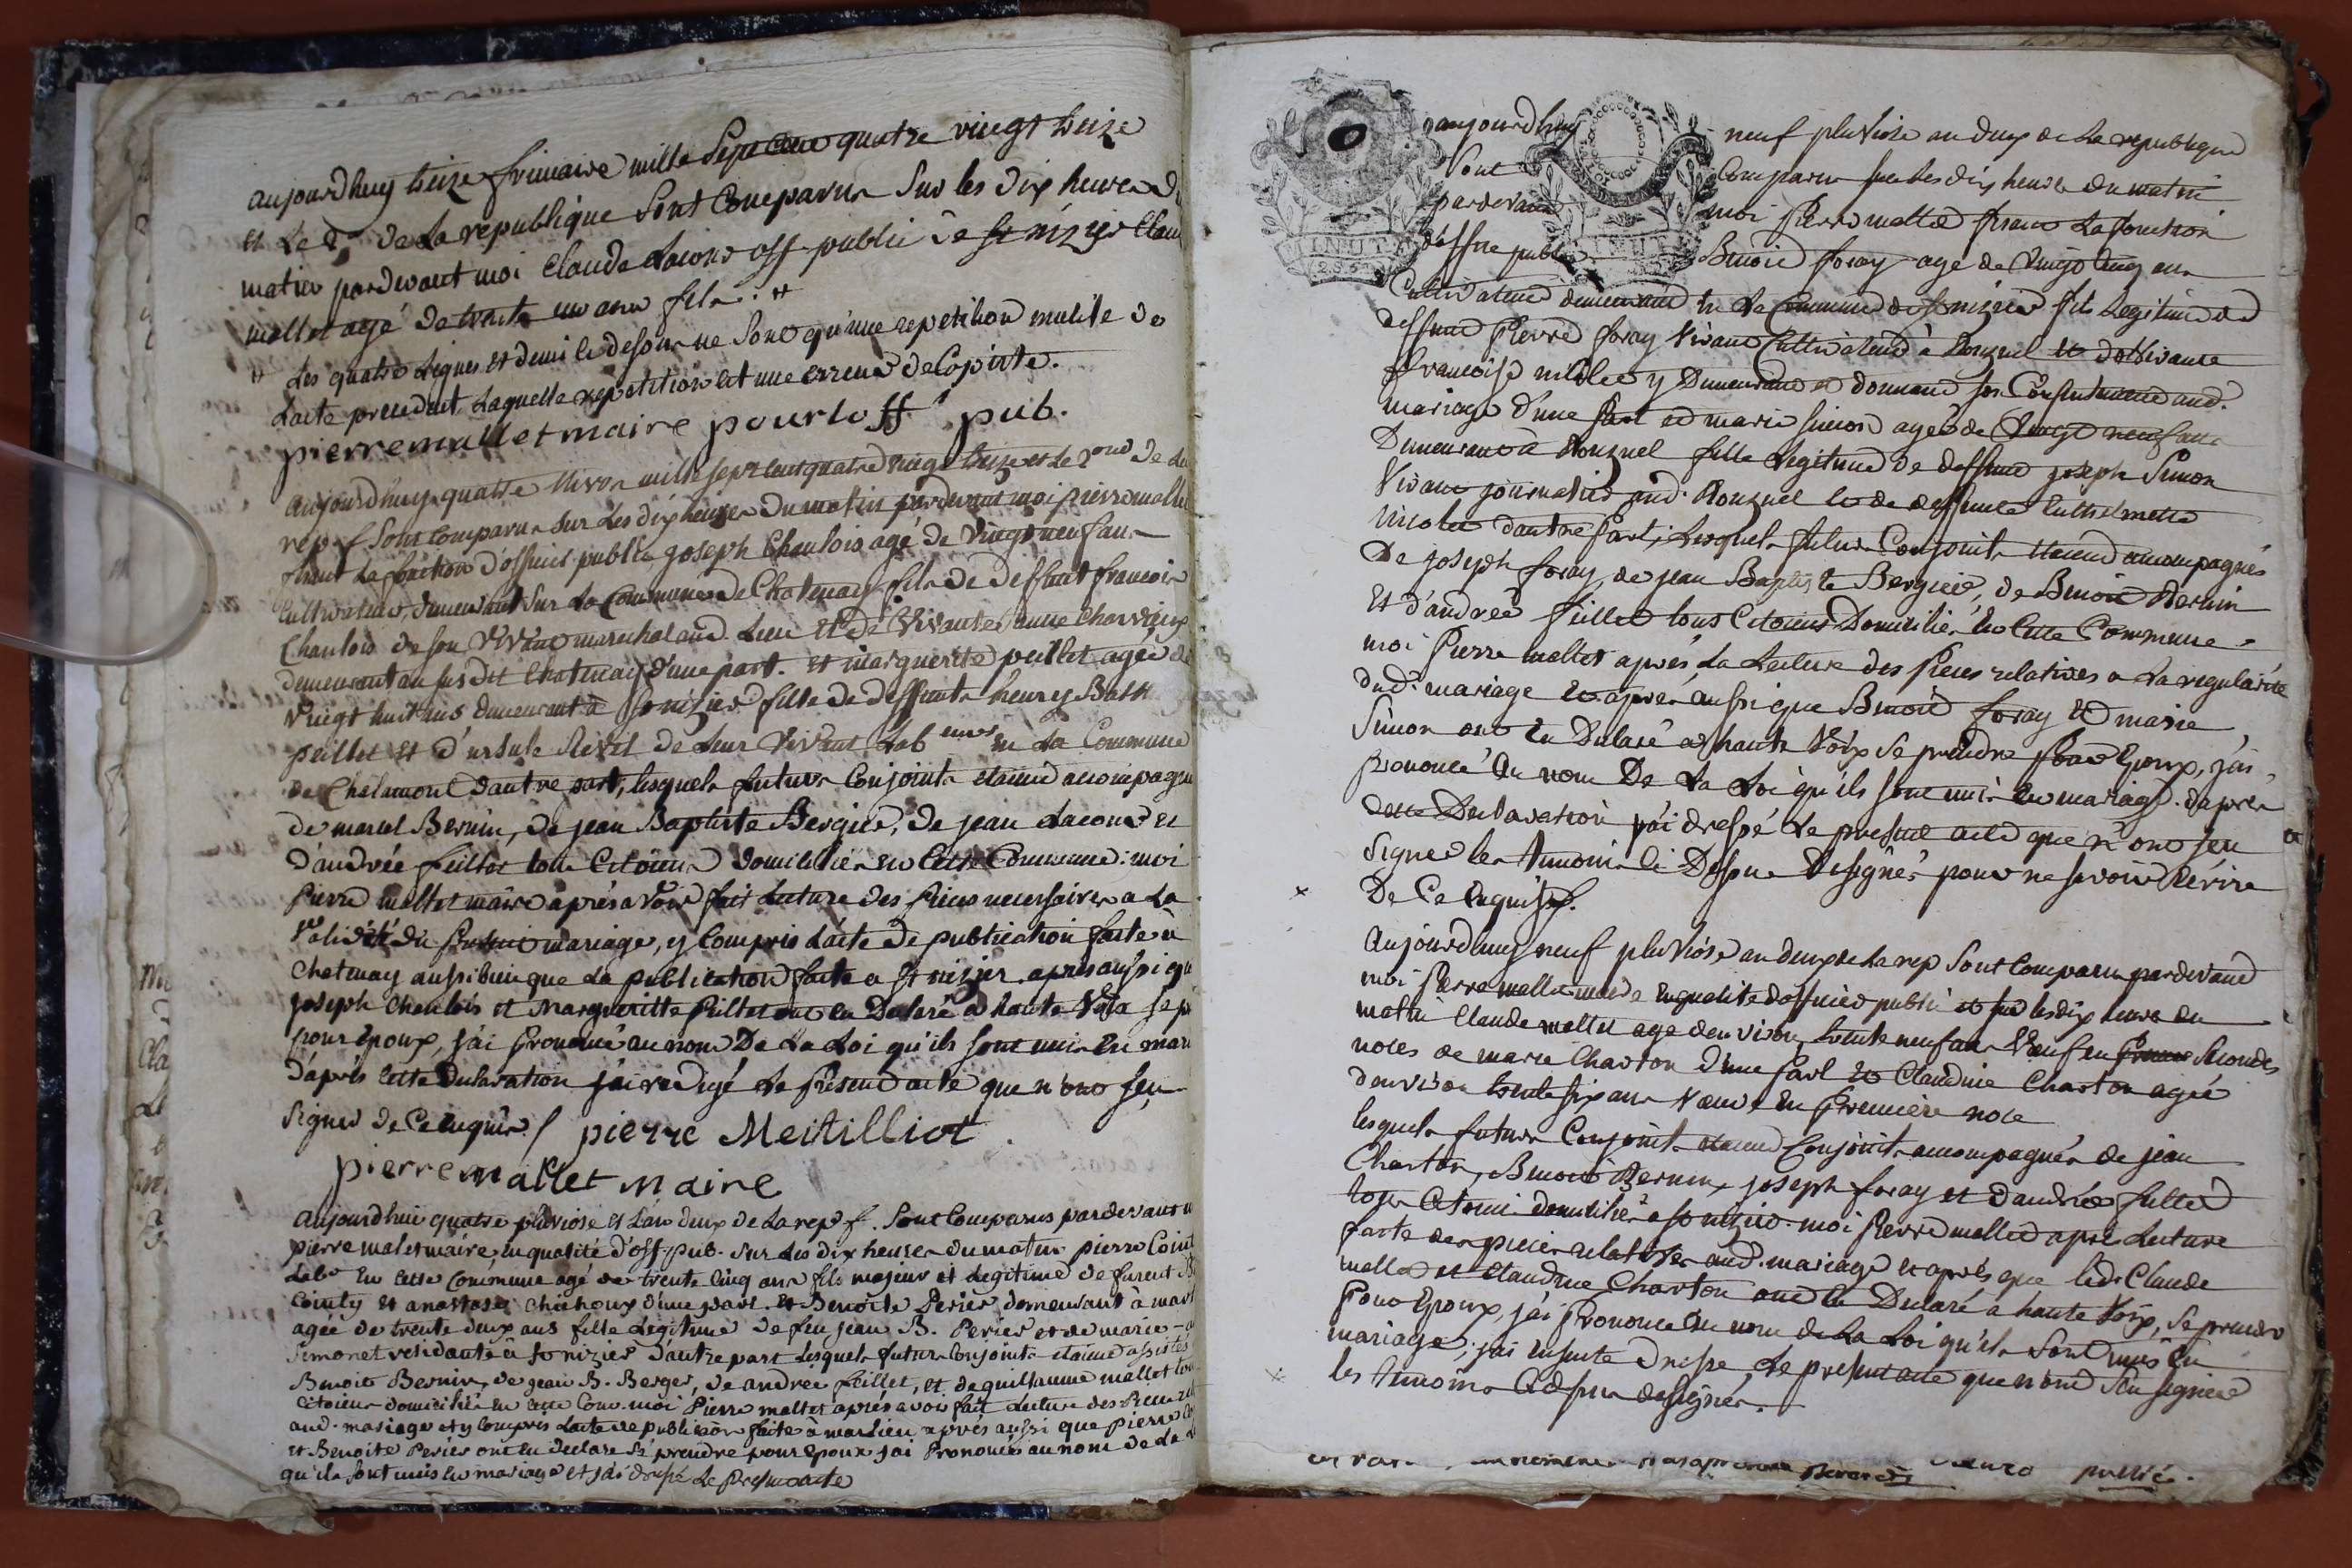 aujourdhuy treize frimaire mille Sept Cent quatre vingt treize
et Le 2 de La republique Sont Comparus Sur les dix heures
matin pardevant moi Claude Lacour off public de St nizier Clau
mallet agé de trente un ans fils. #
# Les quatre Lignes et demi ci desous ne Sont qu'une repetition inutile de
L'acte precedent Laquelle repetition est une erreur de Copiste.
pierre mallet maire pour loff pub.
aujourdhuy quatre Nivos mille sept cent quatre vingt treize et Le 2 de La
rep f Sont Comparus Sur Les dix heures du matin pardevant moi pierre mallet
fesant La fonction d'officier public joseph Chanlois agé de Vingt neuf ans
Cultivateur, demeurant Sur La Commune de Chatenay fils de deffunt francois
Chanlois de son Vivant marechal aud. Lieu et de Vivante anne Charvieux
demeurant au sus dit Chatenay d'une part. et marguerite peillet ageé de
Vingt huit ans demeurant à St nizier fille de deffunts henry Balt
peillet et d'ursule Revil de Leur Vivant Lab eurs en La Commune
de Chalamont d'autre part, lesquels futurs Conjoints etaient accompagn
de marcel Bernin, de jean Baptiste Bergier, de jean Lacour et
d'andrée feillet tous Citoiens domiciliés en Cette Commune: moi
Pierre mallet maire aprés avoir fait Lecture des Pieces necessaires a La
Validité du Present mariage, y Compris L'acte de publication faite à
Chatenay aussi bien que La publication faite a St nizier apres aussi que
joseph Chanlois et Margueritte Peillet ont eu Declaré a haute Voix se p
pour Epoux, j'ai Prononcé au nom De La Loi qu'ils sont unis En mari
D'après cette Declaration j'ai redigé Le Present acte que n'ont seu
Signer de Ce enquis / pierre Meitilliot
pierre mallet maire
aujourdhui quatre pluviose et L'an deux de La rep f. Sont Comparus pardevant m
pierre mallet maire en qualité d'off. pub. Sur Les dix heures du matin pierre Coint
Lab en cette Commune agé de trente Cinq ans fils majeur et Legitime de furent
Cointy et anastase Chichoux d'une part. et Benoite Perier demeurant à marl
ageé de trente deux ans fille Legitime de feu jean B. Perier et de marie
Simonet residante à St nizier d'autre part Lesquels futurs Conjoints etaient assistés
Benoit Bernin, de jean B. Berger, de andree feillet, et de guillaume mallet tous
Citoiens domiciliés en cette Com. moi Pierre mallet aprés avoir fait Lecture des Pieces rel
aud. mariage et y Compris L'acte de publicaon faite à marlieu aprés aussi que pierre
et Benoite Perier ont eu declaré Se prendre pour epoux jai Prononcé au nom de La
qu'ils sont unis en mariage et j'ai dressé Le Present acte
aujourdhuy neuf pluviose an deux de La republique
Sont Comparus sur Les dix heures du matin
pardevant moi Pierre mallet fesant La fonction
d'offier public Benoit foray agé de Vingt Cinq ans
Cultivateur demeurant en La Commune de St nizier fils Legitime de
deffunt Pierre foray Vivant Cultivateur à Ronzuel et de Vivante
francoise y Demeurante et donnant son Consentement aud.
mariage d'une Part et marie simon ageé de Vingt neuf ans
Demeurant à Ronzuel fille Legitime de deffunt joseph Simon
Vivant journalier aud. Ronzuel et de deffunte
Nicolet dautre Part, Lesquels futurs Conjoints etaient accompagnés
De joseph foray, de jean Baptiste Bergier, de Benoit Bernin
Et d'andreé feillet tous Citoiens Domiciliés en Cette Commune.
moi Pierre mallet aprés La Lecture des Pieces relatives a La regularité
dud. mariage et apres aussi que Benoit foray et marie
Simon ont eu Declaré a haute Voix Se prendre pour Epoux, j'ai
Prononcé Au nom De La Loi qu'ils sont unis en mariage. daprès
cette Declaration j'ai dressé Le present acte que n'ont seu
Signer les temoins Ci Desous Designés pour ne savoir Ecrire
De Ce Enquis.
aujourdhuy neuf pluviose an deux de La rep Sont Comparu pardevant
moi Pierre mallet maire en qualité d'officier public et sur les dix heures du
matin Claude mallet age d'environ trente neuf ans Veuf en Secondes
noces de marie Charton d'une Part et Claudine Charton ageé
d'environ trente six ans Veuve En Premiere noce
lesquels futurs Conjoints etaient Conjoints accompagnés de jean
Charton, Benoit Bernin, joseph foray et d'andrée feillet
tous Citoiens domiciliés a St nizier. moi Pierre mallet aprés Lecture
faite des pieces relatives aud. mariage et aprés que led. Claude
mallet et Claudine Charton ont eu Declaré à haute Voix, Se prendre
Pour Epoux, j'ai Prononcé Au nom de La Loi qu'ils Sont unis En
mariage; j'ai ensuite dressé Le present acte que n'ont seu signer
les temoins desus designés.
publié.